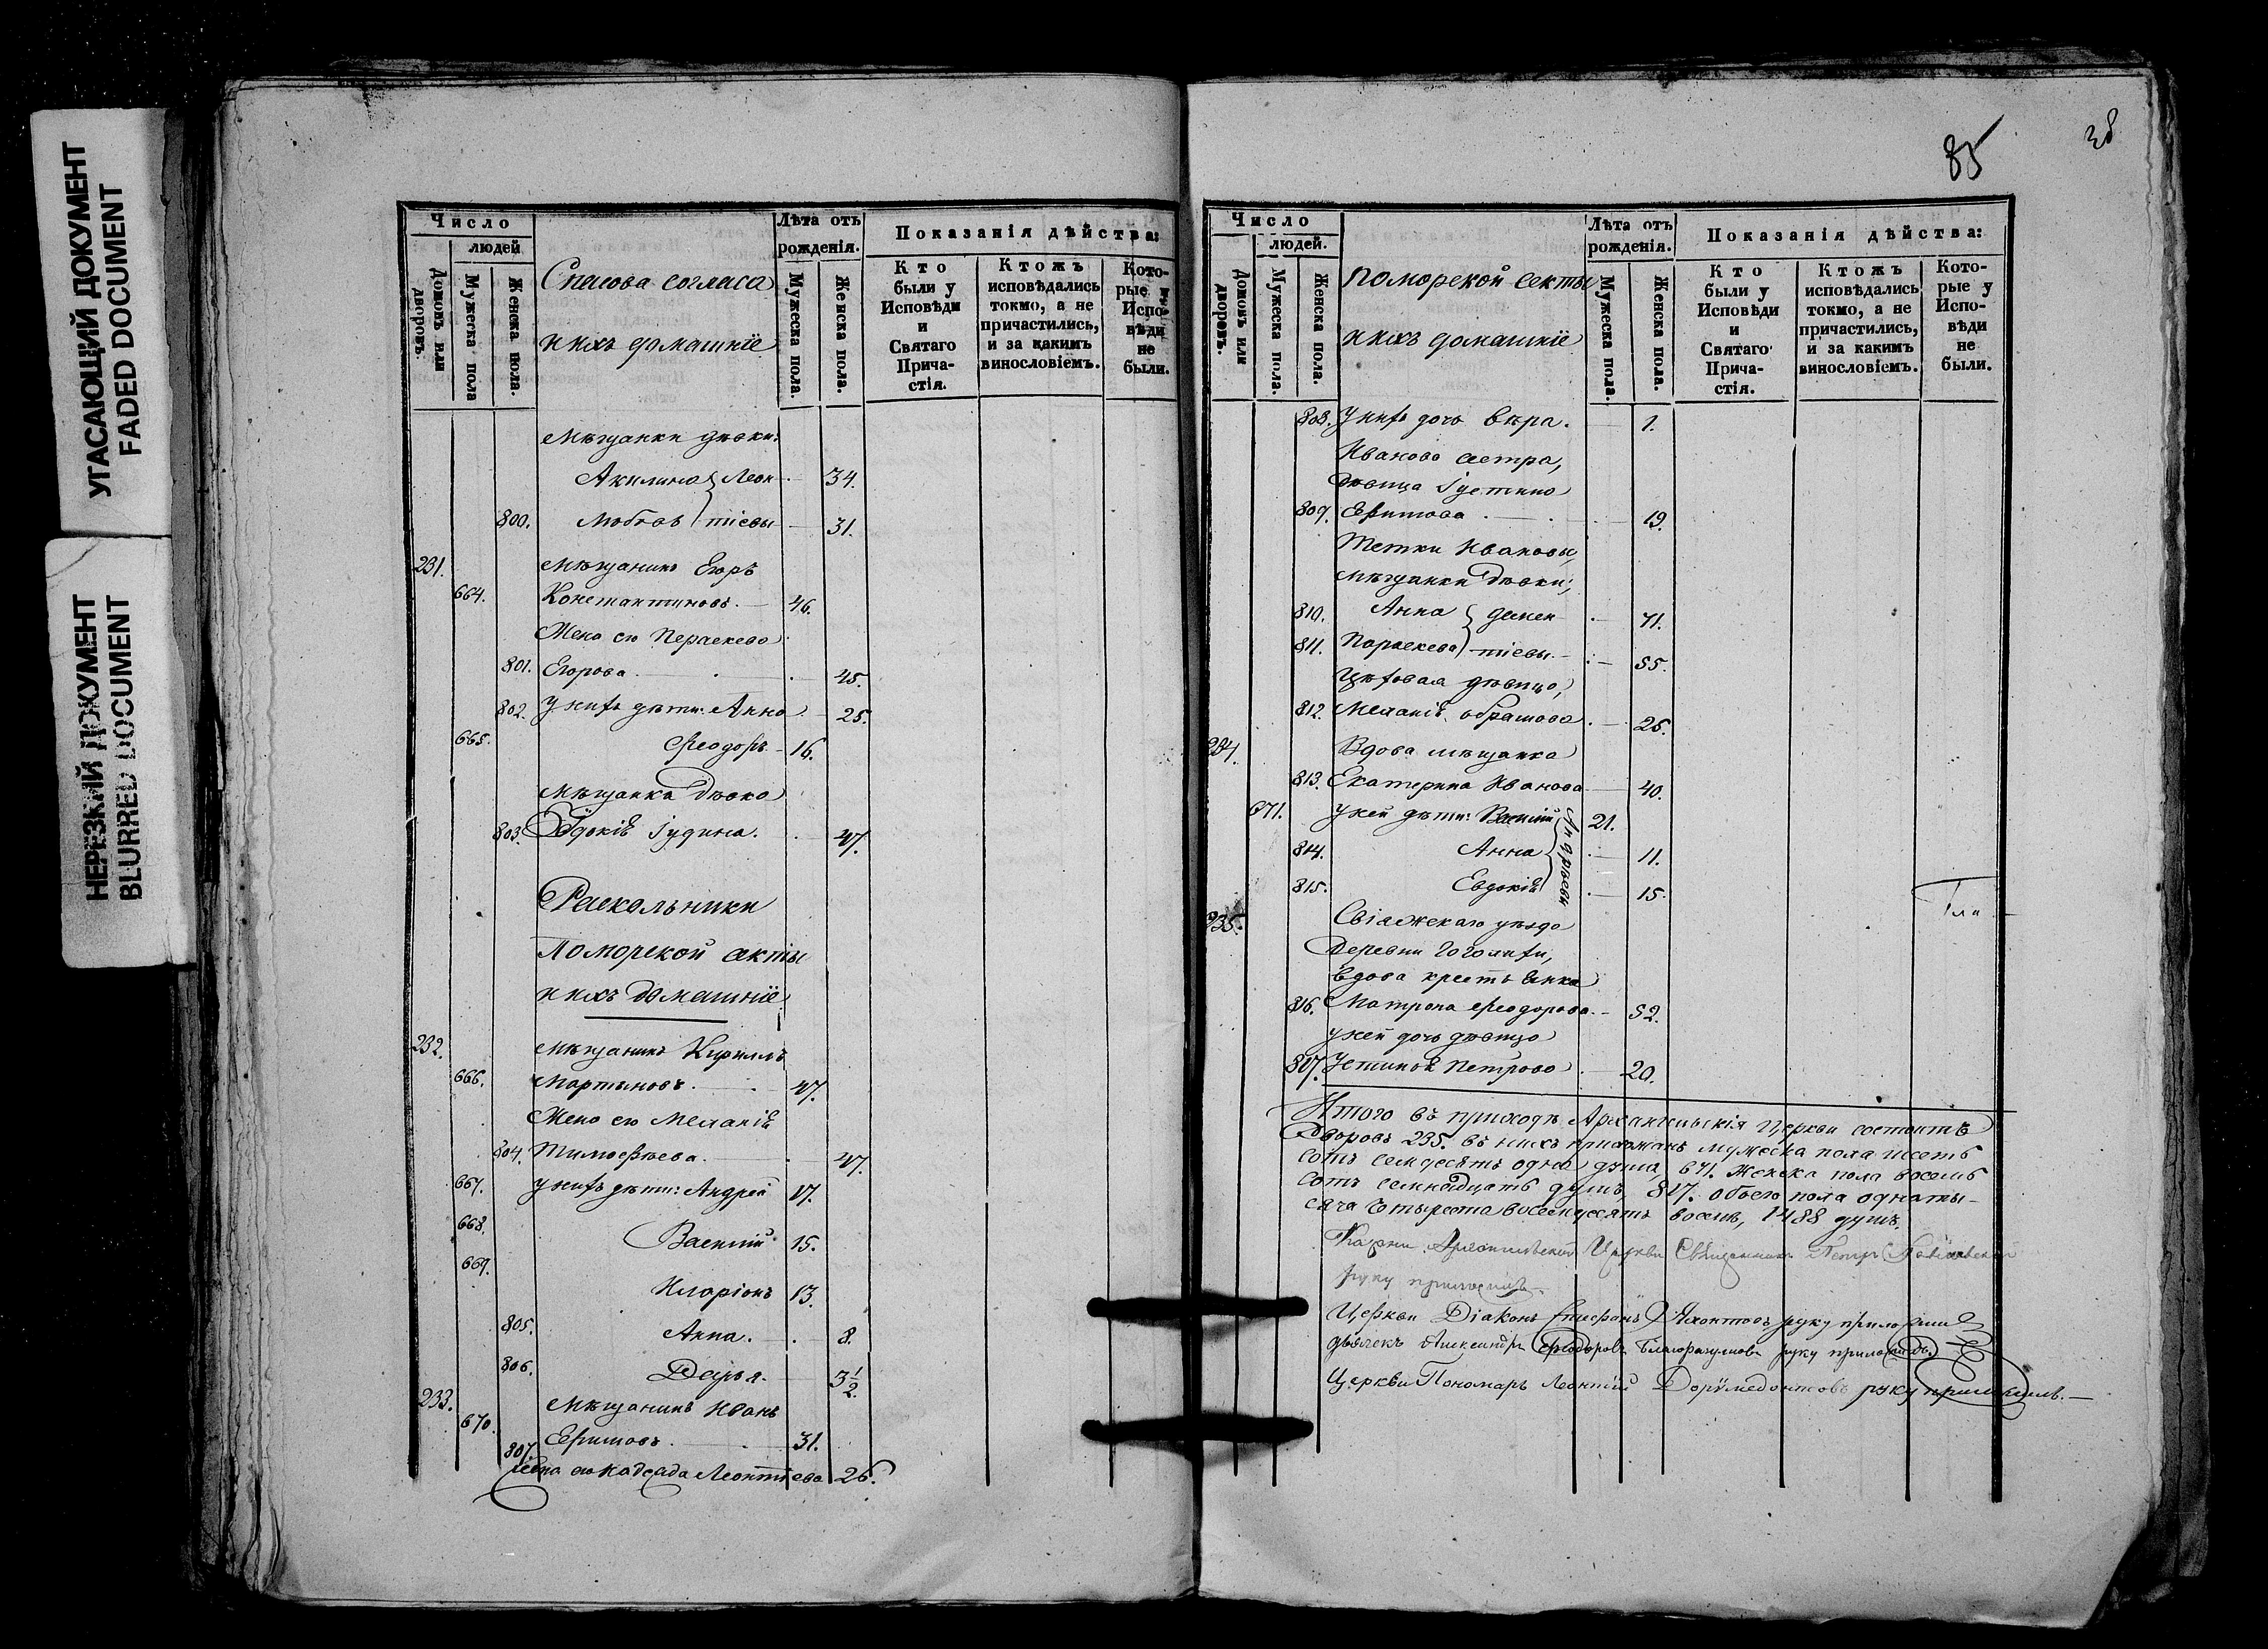 УГАСАЮЩИЙ ДОКУМЕНТ
FADED DOCUMENT
НЕРЕЗКИЙ ДОКУМЕНТ
BLURRED DOCUMENT
Число
людей
Домовъ или дворовъ.
Мужеска пола
Женска пола
Спасова согласа
и ихъ домашніе
Лѣта отъ рожденія.
Мужеска пола.
Женска пола.
Показанія дѣйства:
Кто были у Исповѣди и Святаго Прича-стія.
Ктожъ исповѣдались токмо, а не причастились, и за какимъ винословіемъ.
Кото-рые у Испо-вѣди не были.
Мѣщанки дѣвки:
Акилина Леон- 34.
800. Любовь тіевы 31.
231. Мѣщанинъ Егоръ
664. Константиновъ. 46.
Жена его Параскева
801. Егорова 45.
802. У нихъ дѣти: Анна 25.
665. Феодоръ 16.
Мѣщанка дѣвка
803. Евдокія Іудина. 47.
Раскольники
Поморской секты
и ихъ домашніе
232. Мѣщанинъ Кириллъ
666. Мартыновъ. 47.
Жена его Меланія
804. Тимофѣева. 47.
667. У нихъ дѣти: Андрей 17.
668. Василій 15.
669. Иларіонъ 13.
805. Анна. 8.
806. Дарья. 3 1/2.
233. Мѣщанинъ Иванъ
670. Ефимовъ. 31.
807. Жена его Надежда Леонтьева 26.
85
Число
людей.
Домовъ или дворовъ.
Мужеска пола.
Женска пола.
Поморской секты
и ихъ домашніе
Лѣта отъ рожденія.
Мужеска пола.
Женска пола.
Показанія дѣйства:
Кто были у Исповѣди и Святаго Прича-стія.
Ктожъ исповѣдались токмо, а не причастились, и за какимъ винословіемъ.
Кото-рые у Испо-вѣди не были.
808. У нихъ дочь Вѣра. 1.
Иванова сестра,
дѣвица Іустина
809. Ефимова 19.
Тетки Ивановы,
мѣщанки дѣвки;
810. Анна 71.
811. Параскева тіевы 55.
Цѣховая дѣвица,
812. Меланія 26.
234. Вдова мѣщанка
813. Екатерина Иванова 40.
671. У ней дѣти: Василій Андрѣевы 21.
814. Анна 11.
815. Евдокія 15.
235. Свіяжскаго уѣзда
Деревни Гоголихи,
вдова крестьянка
816. Матрона Феодорова 52.
У ней дочь дѣвица
817. Устинья Петрова 20.
Итого въ приходѣ Архангельскія Церкви состоитъ
Дворовъ 235. въ нихъ прихожанъ мужеска пола шесть
сотъ семдесятъ одна душа, 671. Женска пола восемь
сотъ семнадцать душъ, 817. обоего пола одна ты-
сяча четыреста восемдесятъ восемь, 1488 душъ.
Церкви Священникъ Петръ
руку приложилъ.
Церкви Діаконъ руку приложилъ
дьячекъ Александръ Феодоровъ Благоразумовъ руку приложилъ.
Церкви Пономарь Леонтій Доримедонтовъ руку приложилъ.